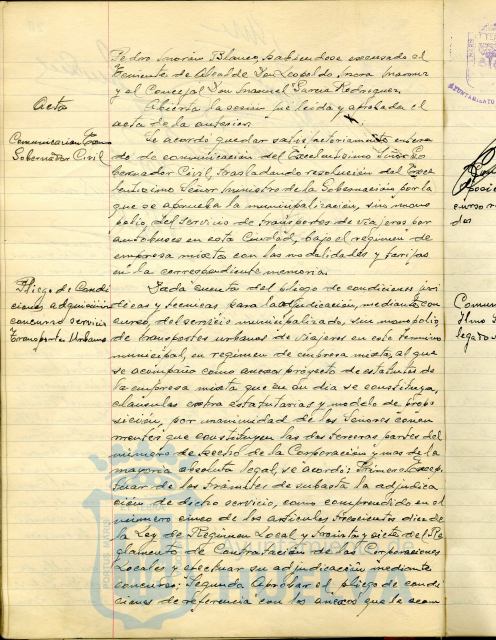 Pedro Morón Blanco, habiéndose excusado el
Teniente de Alcalde Don Leopoldo
y el Concejal Don Manuel García Rodríguez.
Acta
Abierta la sesión fue leída y aprobada el
acta de la anterior.
Comunicación Excmo
Gobernador Civil
Se acordó quedar satisfactoriamente entera
do de comunicación del Excelentísimo Señor Go
bernador Civil, trasladando resolución del Exce
lentísimo Señor Ministro de la Gobernación por la
que se aprueba la municipalización, sin mono
polio, del servicio de transportes de viajeros por
autobuses en esta Ciudad, bajo el régimen de
empresa mixta con las modalidades y tarifas
en la correspondiente memoria.
Pliego de Condi
ciones adquisición
concurso servicio
Transportes Urbanos
Dada cuenta del pliego de condiciones juri
dicas y técnicas para la adjudicación, mediante con
curso, del servicio municipalizado, sin monopolio
de transportes urbanos de viajeros en este término
municipal, en régimen de empresa mixta, al que
se acompaña como anexos proyecto de estatutos de
la empresa mixta que en su día se constituya,
cláusulas extra estatutarias y modelo de propo
sición, por unanimidad de los Señores concu
rrentes que constituyen las dos terceras partes del
número de hecho de la Corporación y mas de la
mayoría absoluta legal, se acordó: Primero Excep
tuar de los trámites de subasta la adjudica
ción de dicho servicio, como comprendido en el
número cinco de los artículos trescientos once de
la Ley de Régimen Local y treinta y siete del Re
glamento de Contratación de las Corporaciones
Locales y efectuar su adjudicación mediante
concurso; Segundo Aprobar el pliego de condi
ciones de referencia con los anexos que le acom